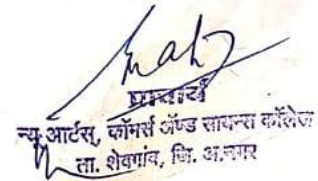 प्राचार्य
न्यु आर्टस्, कॉमर्स ॲण्ड सायन्स कॉलेज
ता. शेवगांव, जि. अ.नगर